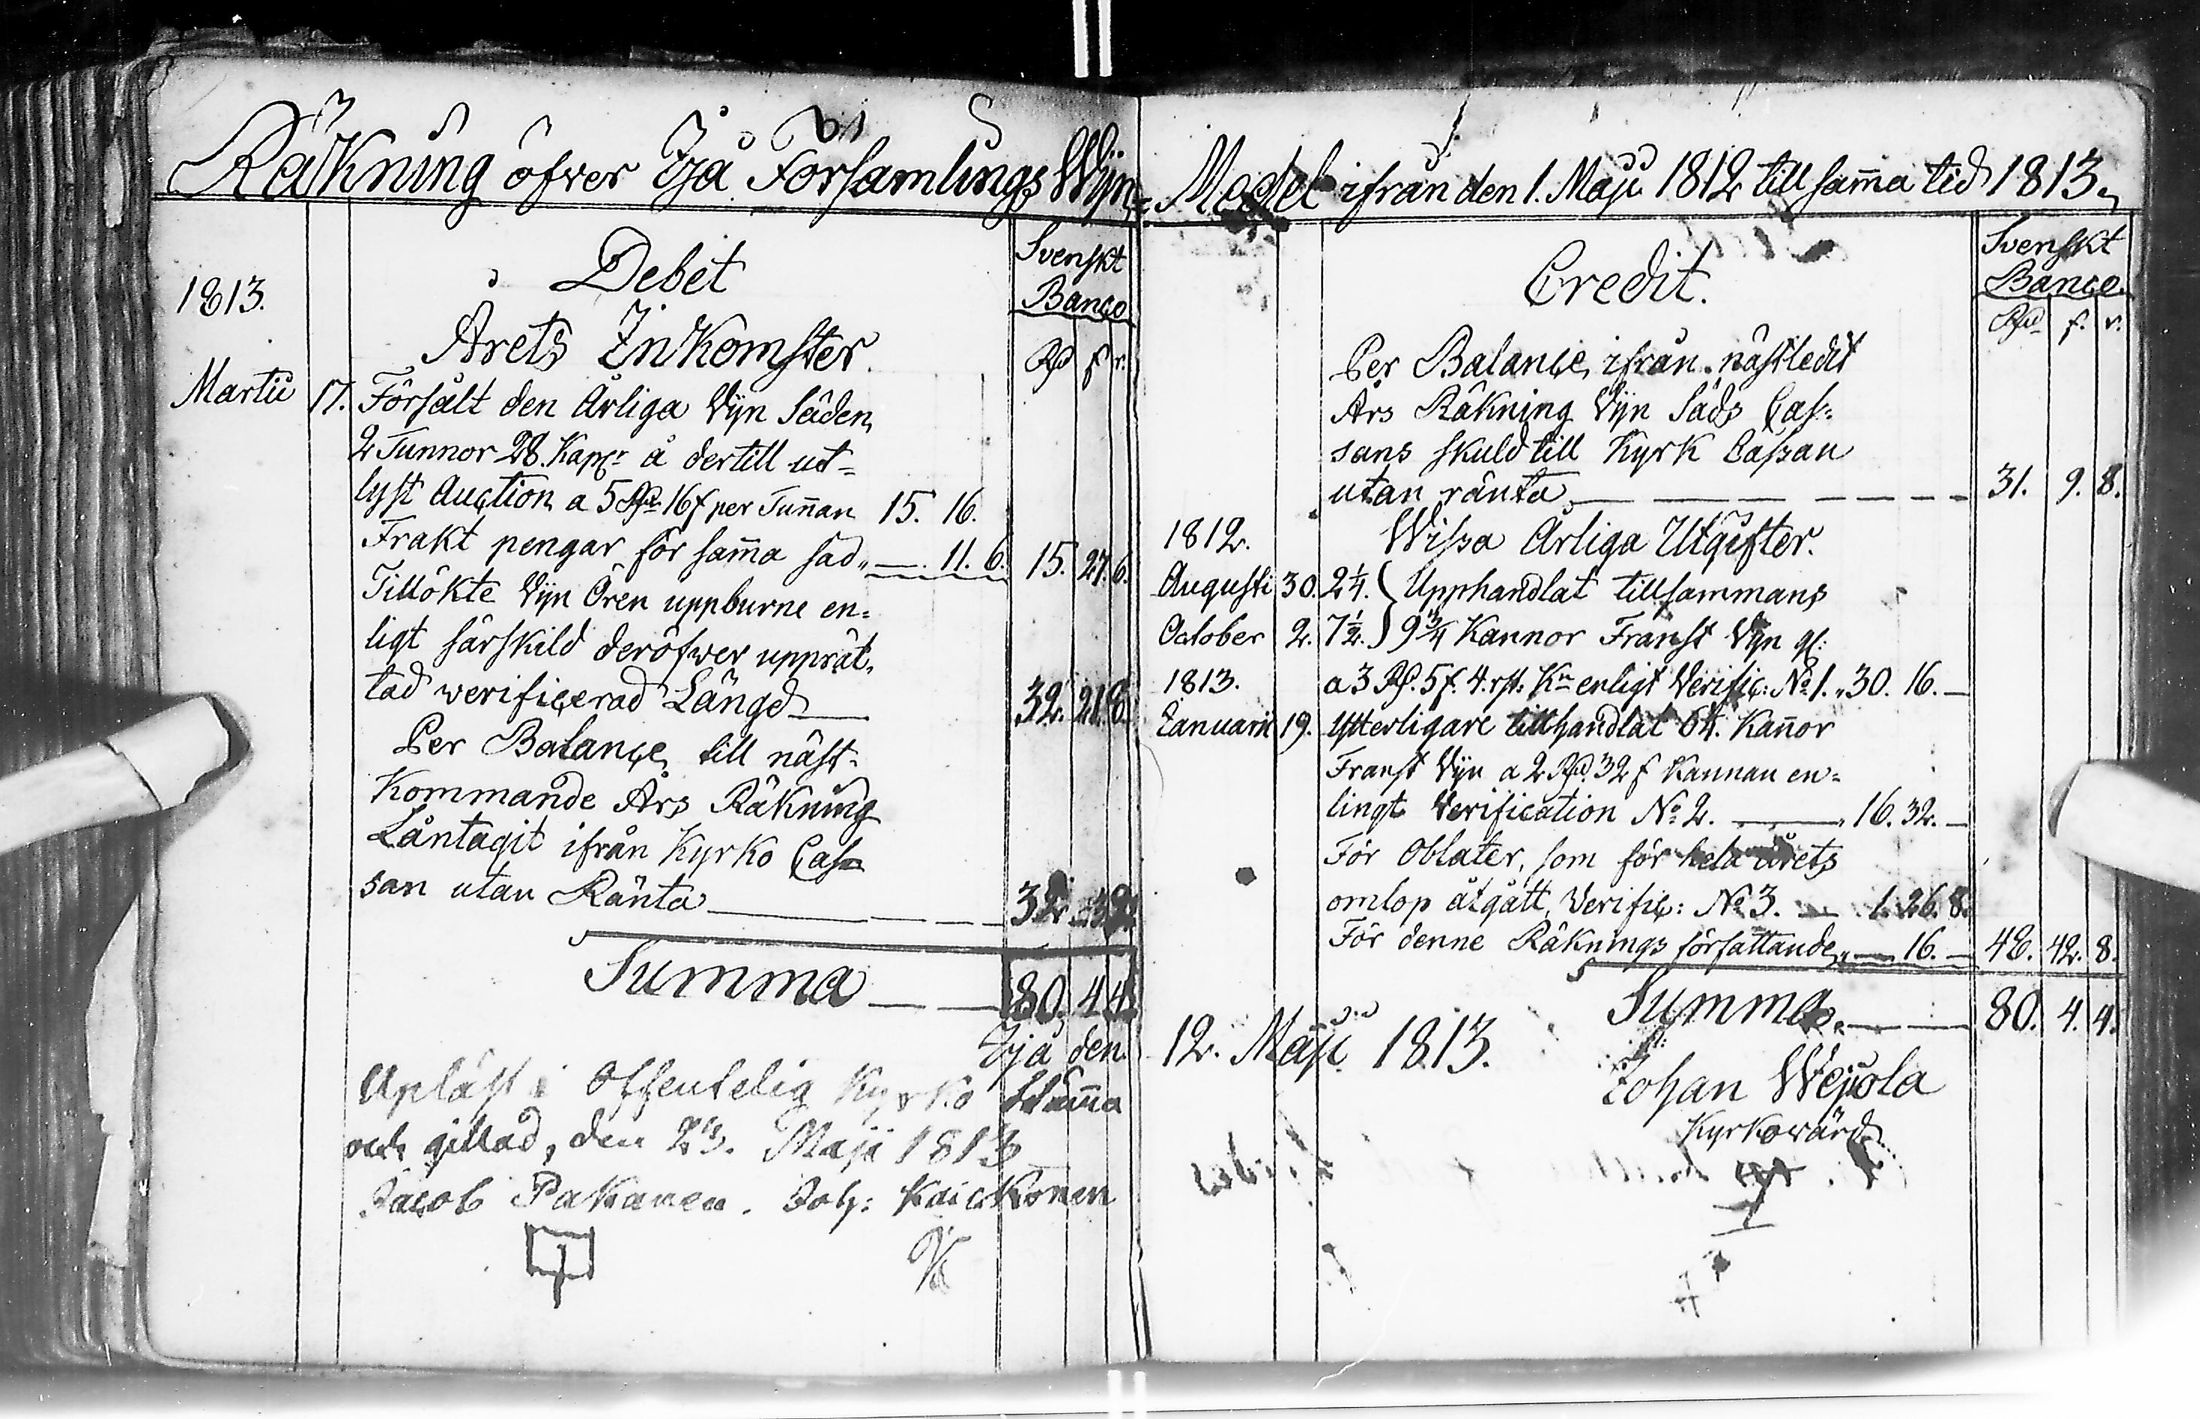 Räkning öfver Jjå Församlings Wijn-
1813.
Debet
Svenskt
Banco
Årets Inkomster.
Rd f r.
Martii 17. Försålt den Årliga Vijn Säden,
2 Tunnor 28. Kapr å dertill ut-
lyst Auction a 5 Rd 16 f per Tunnan 15. 16.
Frakt pengar för samma säd „ — 11. 6. 15. 27. 6.
Tillökte Vijn Ören uppburne en-
ligt särskild deröfwer upprät-
tad werificerad Längd — 32. 21. 8.
Per Balance till näst-
Kommande Års Räkning
Låntagit ifrån Kyrko Cas-
san utan Ränta —
Summa — 80. 4. 4.
Jjå den
Upläst i Offentelig Kyrko Stamma
och gillad, den 23. Maji 1813
Jacob Pakanen. Joh: Kaickonen
Medel ifrån den 1. Maji 1812 till samma tid 1813.
Credit.
Svenskt
Banco.
Rd f. r.
Per Balance ifrån nästledit
Års Räkning Vijn Säds Cas-
sans skuld till Kyrk Cassan
utan ränta — — — — 31. 9. 8.
1812. Wissa Årliga Utgifter.
Augusti 30. 2¼. } Upphandlat tillsammans
October 2. 7½. } 9¾ Kannor Franst Vijn
1813. a 3 Rd. 5 f. 4. rst: Kn enligt Verific: No 1. „ 30. 16. —
Januarii 19. Ytterligare tillhandlat 6¼. Kannor
Franst Vijn a 2 Rd. 32 f Kannan en-
lingt Verification No 2. — 16. 32. —
För Oblater, som för hela årets
omlop åtgått, Verific: No 3. — 1. 26. 8.
För denne Räknings författande „ — 16. — 48. 42. 8.
Summa. — 80. 4. 4.
12. Maji 1813.
Johan Wejola
Kyrkowärd